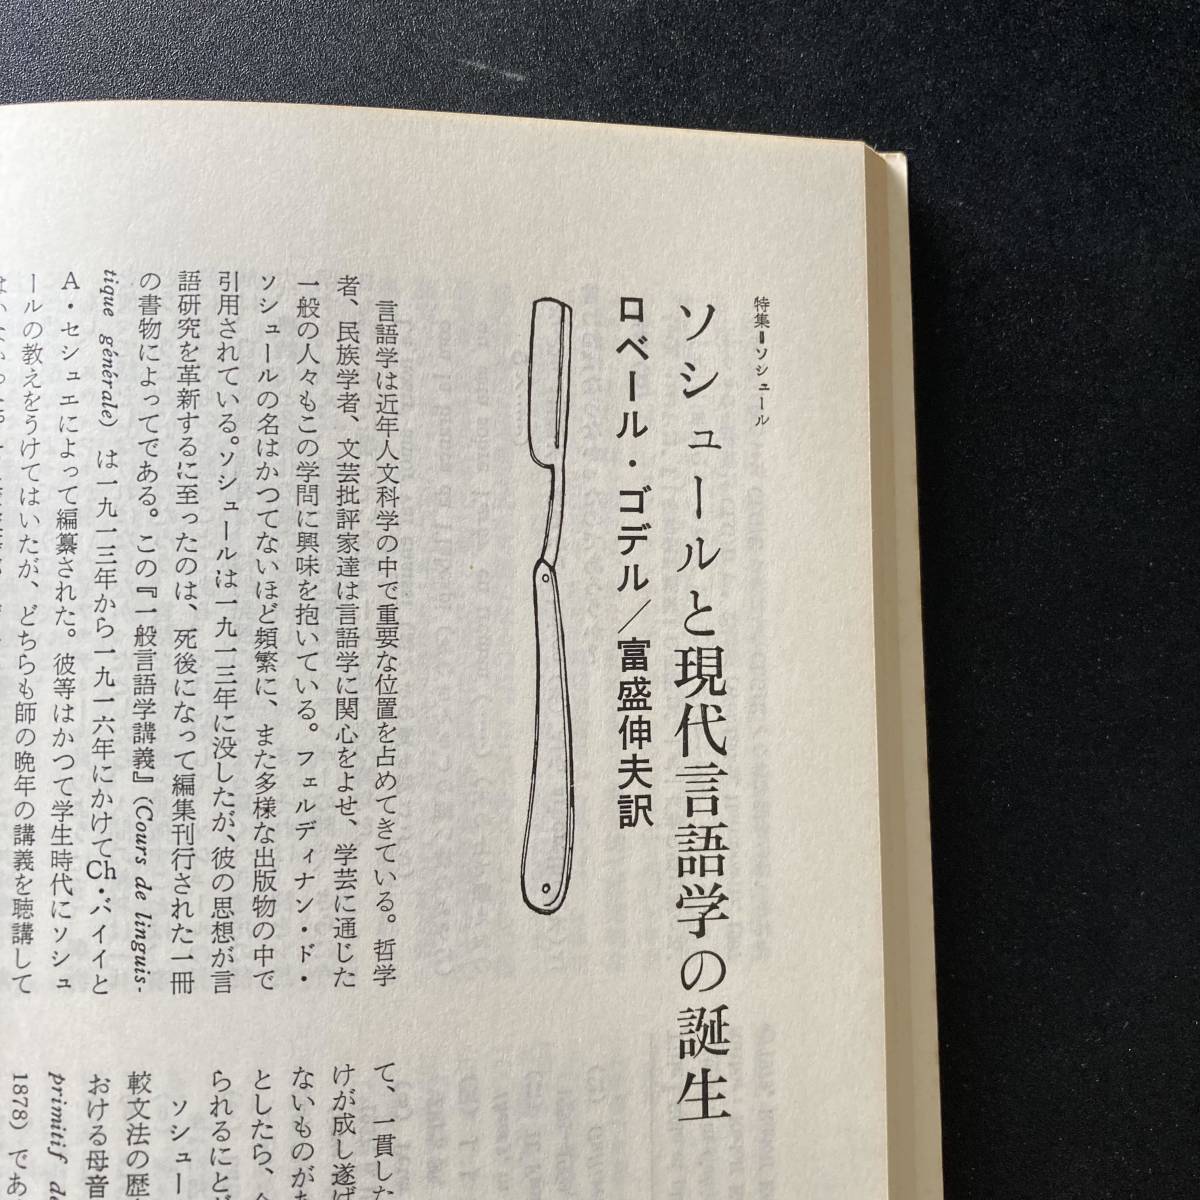 特集=ソシュール
ソシュールと現代言語学の誕生
ロベール・ゴデル/富盛伸夫訳
言語学は近年人文科学の中で重要な位置を占めてきている。哲学
者、民族学者、文芸批評家達は言語学に関心をよせ、学芸に通じた
一般の人々もこの学問に興味を抱いている。フェルディナン・ド・
ソシュールの名はかつてないほど頻繁に、また多様な出版物の中で
引用されている。ソシュールは一九一三年に没したが、彼の思想が言
語研究を革新するに至ったのは、死後になって編集刊行された一冊
の書物によってである。この『一般言語学講義』(Cours de linguis-
tique générale) は一九一三年から一九一六年にかけてCh・バイイと
A・セシュエによって編纂された。彼等はかつて学生時代にソシュ
ールの教えをうけてはいたが、どちらも師の晩年の講義を聴講して
て、一貫した
けが成し遂げ
ないものがあ
としたら、
られることど
ソシュー
較文法の歴
おける母音
primitif de
1878) であ